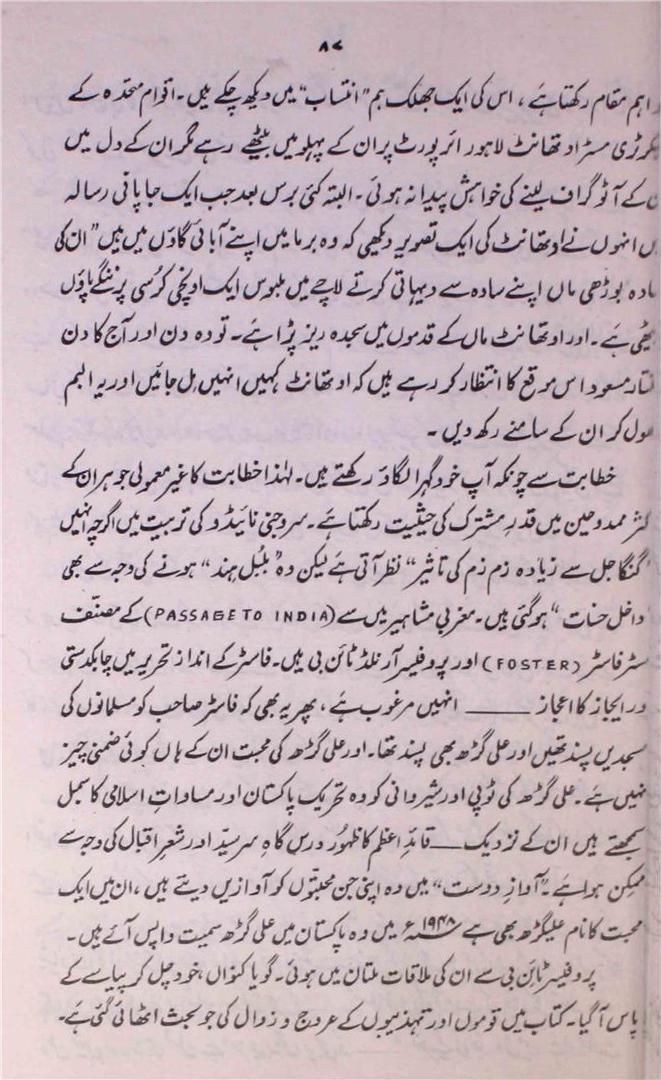 ۸۷
اہم مقام رکھتا ہے ، اس کی ایک جھلک ہم "انتساب" میں دیکھ چکے ہیں۔ اقوام متحدہ کے
مسٹر اوتھانٹ لاہور ائرپورٹ پر ان کے پہلو میں بیٹھے رہے مگر ان کے دل میں
کے آٹوگراف لینے کی خواہش پیدا نہ ہوئی ۔ البتہ کئی برس بعد جب ایک جاپانی رسالہ
انہوں نے اوتھانٹ کی ایک تصویر دیکھی کہ وہ برما میں اپنے آبائی گاؤں میں ہیں "ان کی
بوڑھی ماں اپنے سادہ سے دیہاتی کرتے لاچے میں ملبوس ایک اونچی کرسی پر ننگے پاؤں
ہے ۔ اور اوتھانٹ ماں کے قدموں میں سجدہ ریز پڑا ہے ۔ تو وہ دن اور آج کا دن
مسعود اس موقع کا انتظار کر رہے ہیں کہ اوتھانٹ کہیں انہیں مل جائیں اور یہ البم
کر ان کے سامنے رکھ دیں ۔
خطابت سے چونکہ آپ خود گہرا لگاؤ رکھتے ہیں ۔ لہٰذا خطابت کا غیر معمولی جوہر ان کے
ممدوحین میں قدرِ مشترک کی حیثیت رکھتا ہے ۔ سروجنی نائیڈو کی تربیت میں اگرچہ انہیں
"گنگا جل سے زیادہ زم زم کی تاثیر" نظر آتی ہے لیکن وہ "بلبل ہند" ہونے کی وجہ سے بھی
"داخل حسنات" ہو گئی ہیں ۔ مغربی مشاہیر میں سے (PASSAGE TO INDIA) کے مصنّف
فاسٹر (FOSTER) اور پروفیسر آرنلڈ ٹائن بی ہیں ۔ فاسٹر کے اندازِ تحریر میں چابکدستی
اور ایجاز کا اعجاز ـــــــ انہیں مرغوب ہے ، پھر یہ بھی کہ فاسٹر صاحب کو مسلمانوں کی
مسجدیں پسند تھیں اور علی گڑھ بھی پسند تھا ۔ اور علی گڑھ کی محبت ان کے ہاں کوئی ضمنی چیز
نہیں ہے ۔ علی گڑھ کی ٹوپی اور شیروانی کو وہ تحریک پاکستان اور مساواتِ اسلامی کا سمبل
سمجھتے ہیں ان کے نزدیک ــــ قائدِ اعظم کا ظہور درس گاہِ سرسیّد اور شعرِ اقبال کی وجہ سے
ممکن ہوا ہے ۔ "آوازِ دوست" میں وہ اپنی جن محبتوں کو آوازیں دیتے ہیں ، ان میں ایک
محبت کا نام علیگڑھ بھی ہے ۱۹۴۸ء میں وہ پاکستان میں علی گڑھ سمیت واپس آئے ہیں ۔
پروفیسر ٹائن بی سے ان کی ملاقات ملتان میں ہوئی ۔ گویا کنواں خود چل کر پیاسے کے
پاس آ گیا ۔ کتاب میں قوموں اور تہذیبوں کے عروج و زوال کی جو بحث اٹھائی گئی ہے ۔